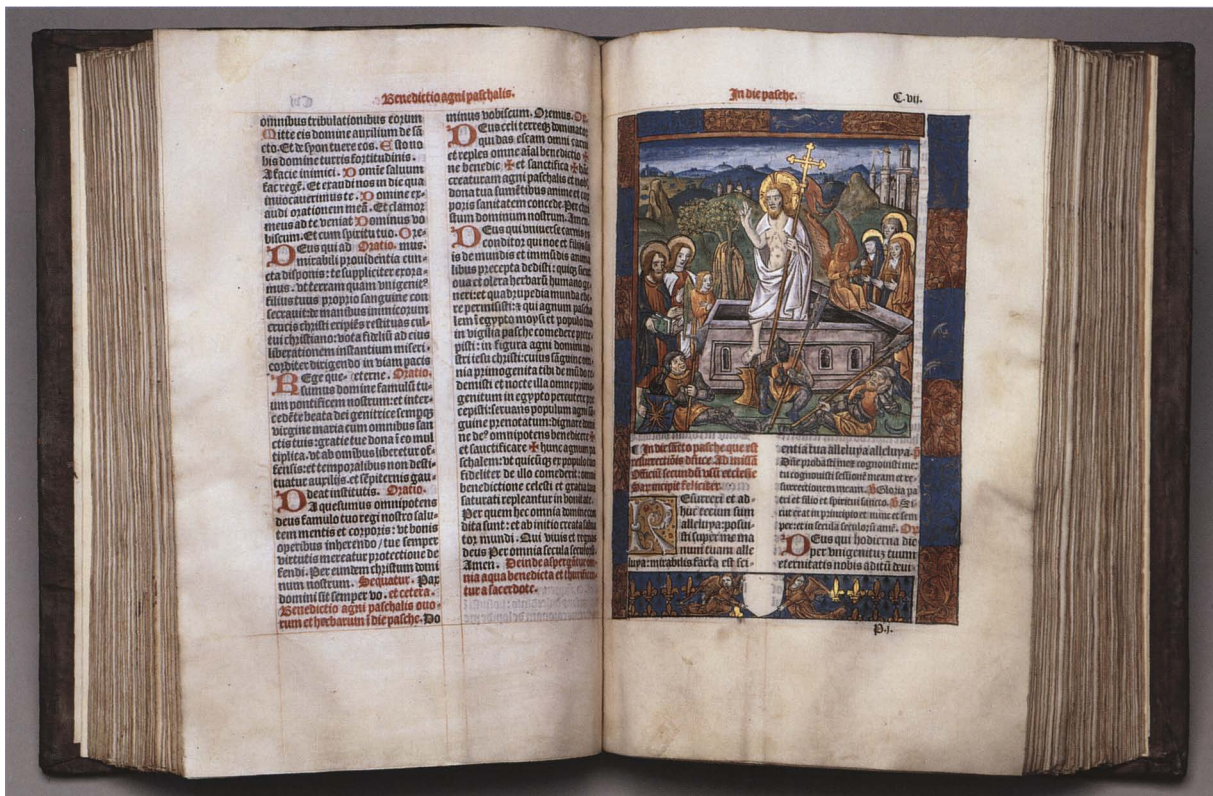 Benedictio agni paschalis.
omnibus tribulationibus eorum
Mitte eis domine auxilium de sā
cto. Et de syon tuere eos. Esto no
bis domine turris fortitudinis.
A facie inimici. Domine saluum
fac regē. Et exaudi nos in die qua
inuocauerimus te. Domine ex-
audi orationem meā. Et clamor
meus ad te veniat Dominus vo
biscum. Et cum spiritu tuo. Ore-
DEus qui ad Oratio. mus.
mirabili prouidentia cun-
cta disponis: te suppliciter exora-
mus. vt terram quam vnigenitꝰ
filius tuus proprio sanguine con
secrauit: de manibus inimicorum
crucis christi eripiēs restituas cul-
tui christiano: vota fidelium ad eius
liberationem instantium miseri-
corditer dirigendo in viam pacis
REge que- eterne. Oratio.
sumus domine famulū tu-
um pontificem nostrum: et inter-
cedēte beata dei genitrice semperque
virgine maria cum omnibus san
ctis tuis: gratie tue dona ī eo mul
tiplica. vt ab omībus liberetur of-
fensis: et temporalibus non desti-
tuatur auxiliis. et sepiternis gau-
deat institutis. Oratio.
DA quesumus omnipotens
deus famulo tuo regi nostro salu-
tem mentis et corporis: vt bonis
operibus inherendo / tue semper
virtutis mereatur protectione de
fendi. Per eundem christum domi
num nostrum. Sequatur. Pax
domini sit semper vo. et cetera.
Benedictio agni paschalis ouo-
rum et herbarum ī die pasche. Do
minus vobiscum. Oremus. Or
DEus celi terreque dominator
qui das escam omni carni
et reples omne aīal benedictio
ne benedic ✠ et sanctifica ✠
creaturam agni paschalis et
dona tua sumētibus anime et cor
poris sanitatem concede. Per chri
stum dominum nostrum. Amen.
DEus qui vniuerse carnis es
conditor qui noe et filiis
is de mundis et immūdis anima
libus precepta dedisti: sicut
oua et olera herbarū humano ge
neri: et quadrupedia munda ede
re permisisti: a qui agnum pascha
lem ī egypto moysi et populo tuo
in vigilia pasche comedere prece
pisti: in figura agni domini no
stri iesu christi: cuius sāguine om
nia primogenita tibi de mūdo re
demisti et nocte illa omne primo
genitum in egypto percutere pre
cepisti: seruans populum agni sā
guine prenotatum: dignare domi
ne deꝰ omnipotens benedicere ✠
et sanctificare ✠ hunc agnum pa
schalem: vt quicūque ex populo tuo
fideliter de illo comederit: omni
benedictione celesti et gracia tua
saturati repleantur in bonitate.
Per quem hec omnia domine con
dita sunt: et ab initio creata salua
tor mundi. Qui viuis et regnas
deus Per omnia secula seculorū
Amen. Deinde aspergātur om
nia aqua benedicta et thurificen
tur a sacerdote.
In die pasche.
C. vii.
¶ In die scō pasche que est
resurrectiōis dnīce. Ad missā
Officiū secundū vsū ecclesie
Sar. incipit feliciter.
REsurrexi et ad-
huc tecum sum
alleluya: posui-
sti super me ma
num tuam alle
luya: mirabilis facta est sci-
entia tua alleluya alleluya. p̄
Dñe probasti me et cognouisti me:
tu cognouisti sessionē meam et re-
surrectionem meam. Gloria pa
tri et filio et spiritui sancto. Si-
cut erat in principio et nunc et sem
per: et in secula seculorū amē. Or
DEus qui hodierna die
per vnigenitum tuum
eternitatis nobis aditū deui-
P.i.